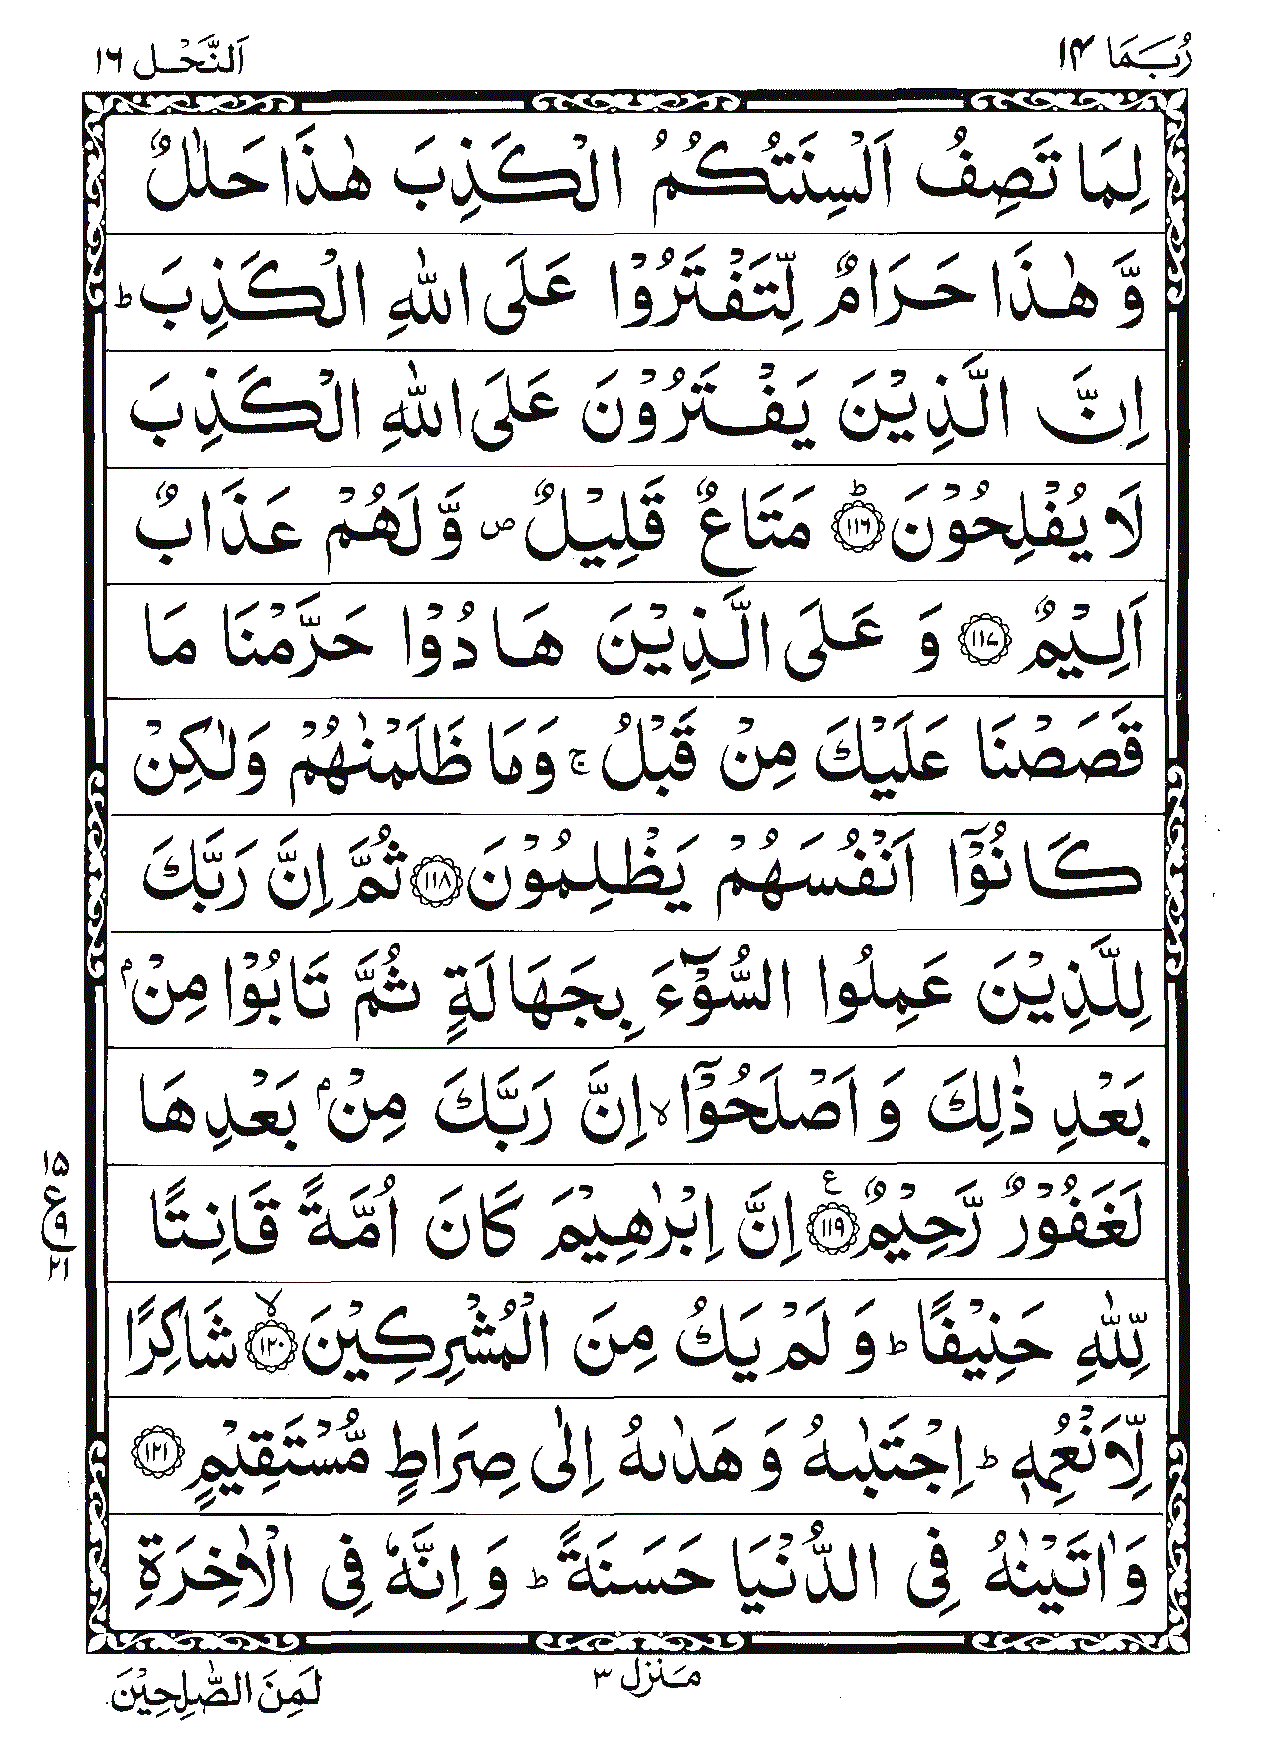 رُبَمَا ١٤
اَلنَّحْل ١٦
لِمَا تَصِفُ اَلْسِنَتُكُمُ الْكَذِبَ هٰذَا حَلٰلٌ
وَّ هٰذَا حَرَامٌ لِّتَفْتَرُوْا عَلَى اللّٰهِ الْكَذِبَ ؕ
اِنَّ الَّذِيْنَ يَفْتَرُوْنَ عَلَى اللّٰهِ الْكَذِبَ
لَا يُفْلِحُوْنَ ؕ ﴿١١٦﴾ مَتَاعٌ قَلِيْلٌ ۪ وَّ لَهُمْ عَذَابٌ
اَلِيْمٌ ﴿١١٧﴾ وَ عَلَى الَّذِيْنَ هَادُوْا حَرَّمْنَا مَا
قَصَصْنَا عَلَيْكَ مِنْ قَبْلُ ۚ وَمَا ظَلَمْنٰهُمْ وَلٰكِنْ
كَانُوْۤا اَنْفُسَهُمْ يَظْلِمُوْنَ ﴿١١٨﴾ ثُمَّ اِنَّ رَبَّكَ
لِلَّذِيْنَ عَمِلُوا السُّوْٓءَ بِجَهَالَةٍ ثُمَّ تَابُوْا مِنْۢ
بَعْدِ ذٰلِكَ وَ اَصْلَحُوْۤا ۙ اِنَّ رَبَّكَ مِنْۢ بَعْدِهَا
لَغَفُوْرٌ رَّحِيْمٌ ﴿١١٩﴾ ع اِنَّ اِبْرٰهِيْمَ كَانَ اُمَّةً قَانِتًا
١٥
ع ٩
٢١
لِّلّٰهِ حَنِيْفًا ؕ وَ لَمْ يَكُ مِنَ الْمُشْرِكِيْنَ ۙ ﴿١٢٠﴾ شَاكِرًا
لِّاَنْعُمِهٖ ؕ اِجْتَبٰىهُ وَ هَدٰىهُ اِلٰى صِرَاطٍ مُّسْتَقِيْمٍ ﴿١٢١﴾
وَ اٰتَيْنٰهُ فِى الدُّنْيَا حَسَنَةً ؕ وَ اِنَّهٗ فِى الْاٰخِرَةِ
مَنْزِل ٣
لَمِنَ الصّٰلِحِيْنَ